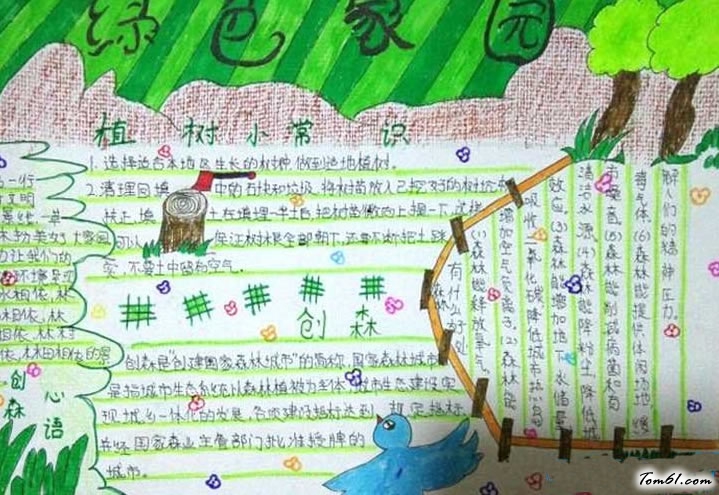 绿色家园
植树小常识
1. 选择适合本地区生长的树种,做到适地植树。
2. 清理回填中的石块和垃圾,将树苗放入已挖好的树坑中
扶正填土在填埋一半后,把树苗微向上提一下,这样
可以保证树根全部朝下,还要不断把土踩
实,不要土中留有空气。
创森
创森是"创建国家森林城市"的简称,国家森林城市
是指城市生态系统以森林植被为主体,城市生态建设实
现城乡一体化的发展,各项建设指标达到规定指标
并经国家林业主管部门批准授牌的
城市。
森林
有什么好处
(1)森林能释放氧气,
增加空气负离子。(2)森林能
吸收二氧化碳,降低城市热岛
效应。(3)森林能增加地下水储量,
清洁水源。(4)森林能降粉尘、降低城
市噪音。(5)森林能削减病菌和有
毒气体。(6)森林能提供休闲场地,缓
解人们的精神压力。
水相依,林
相依,林
创森
心语
Tom61.com